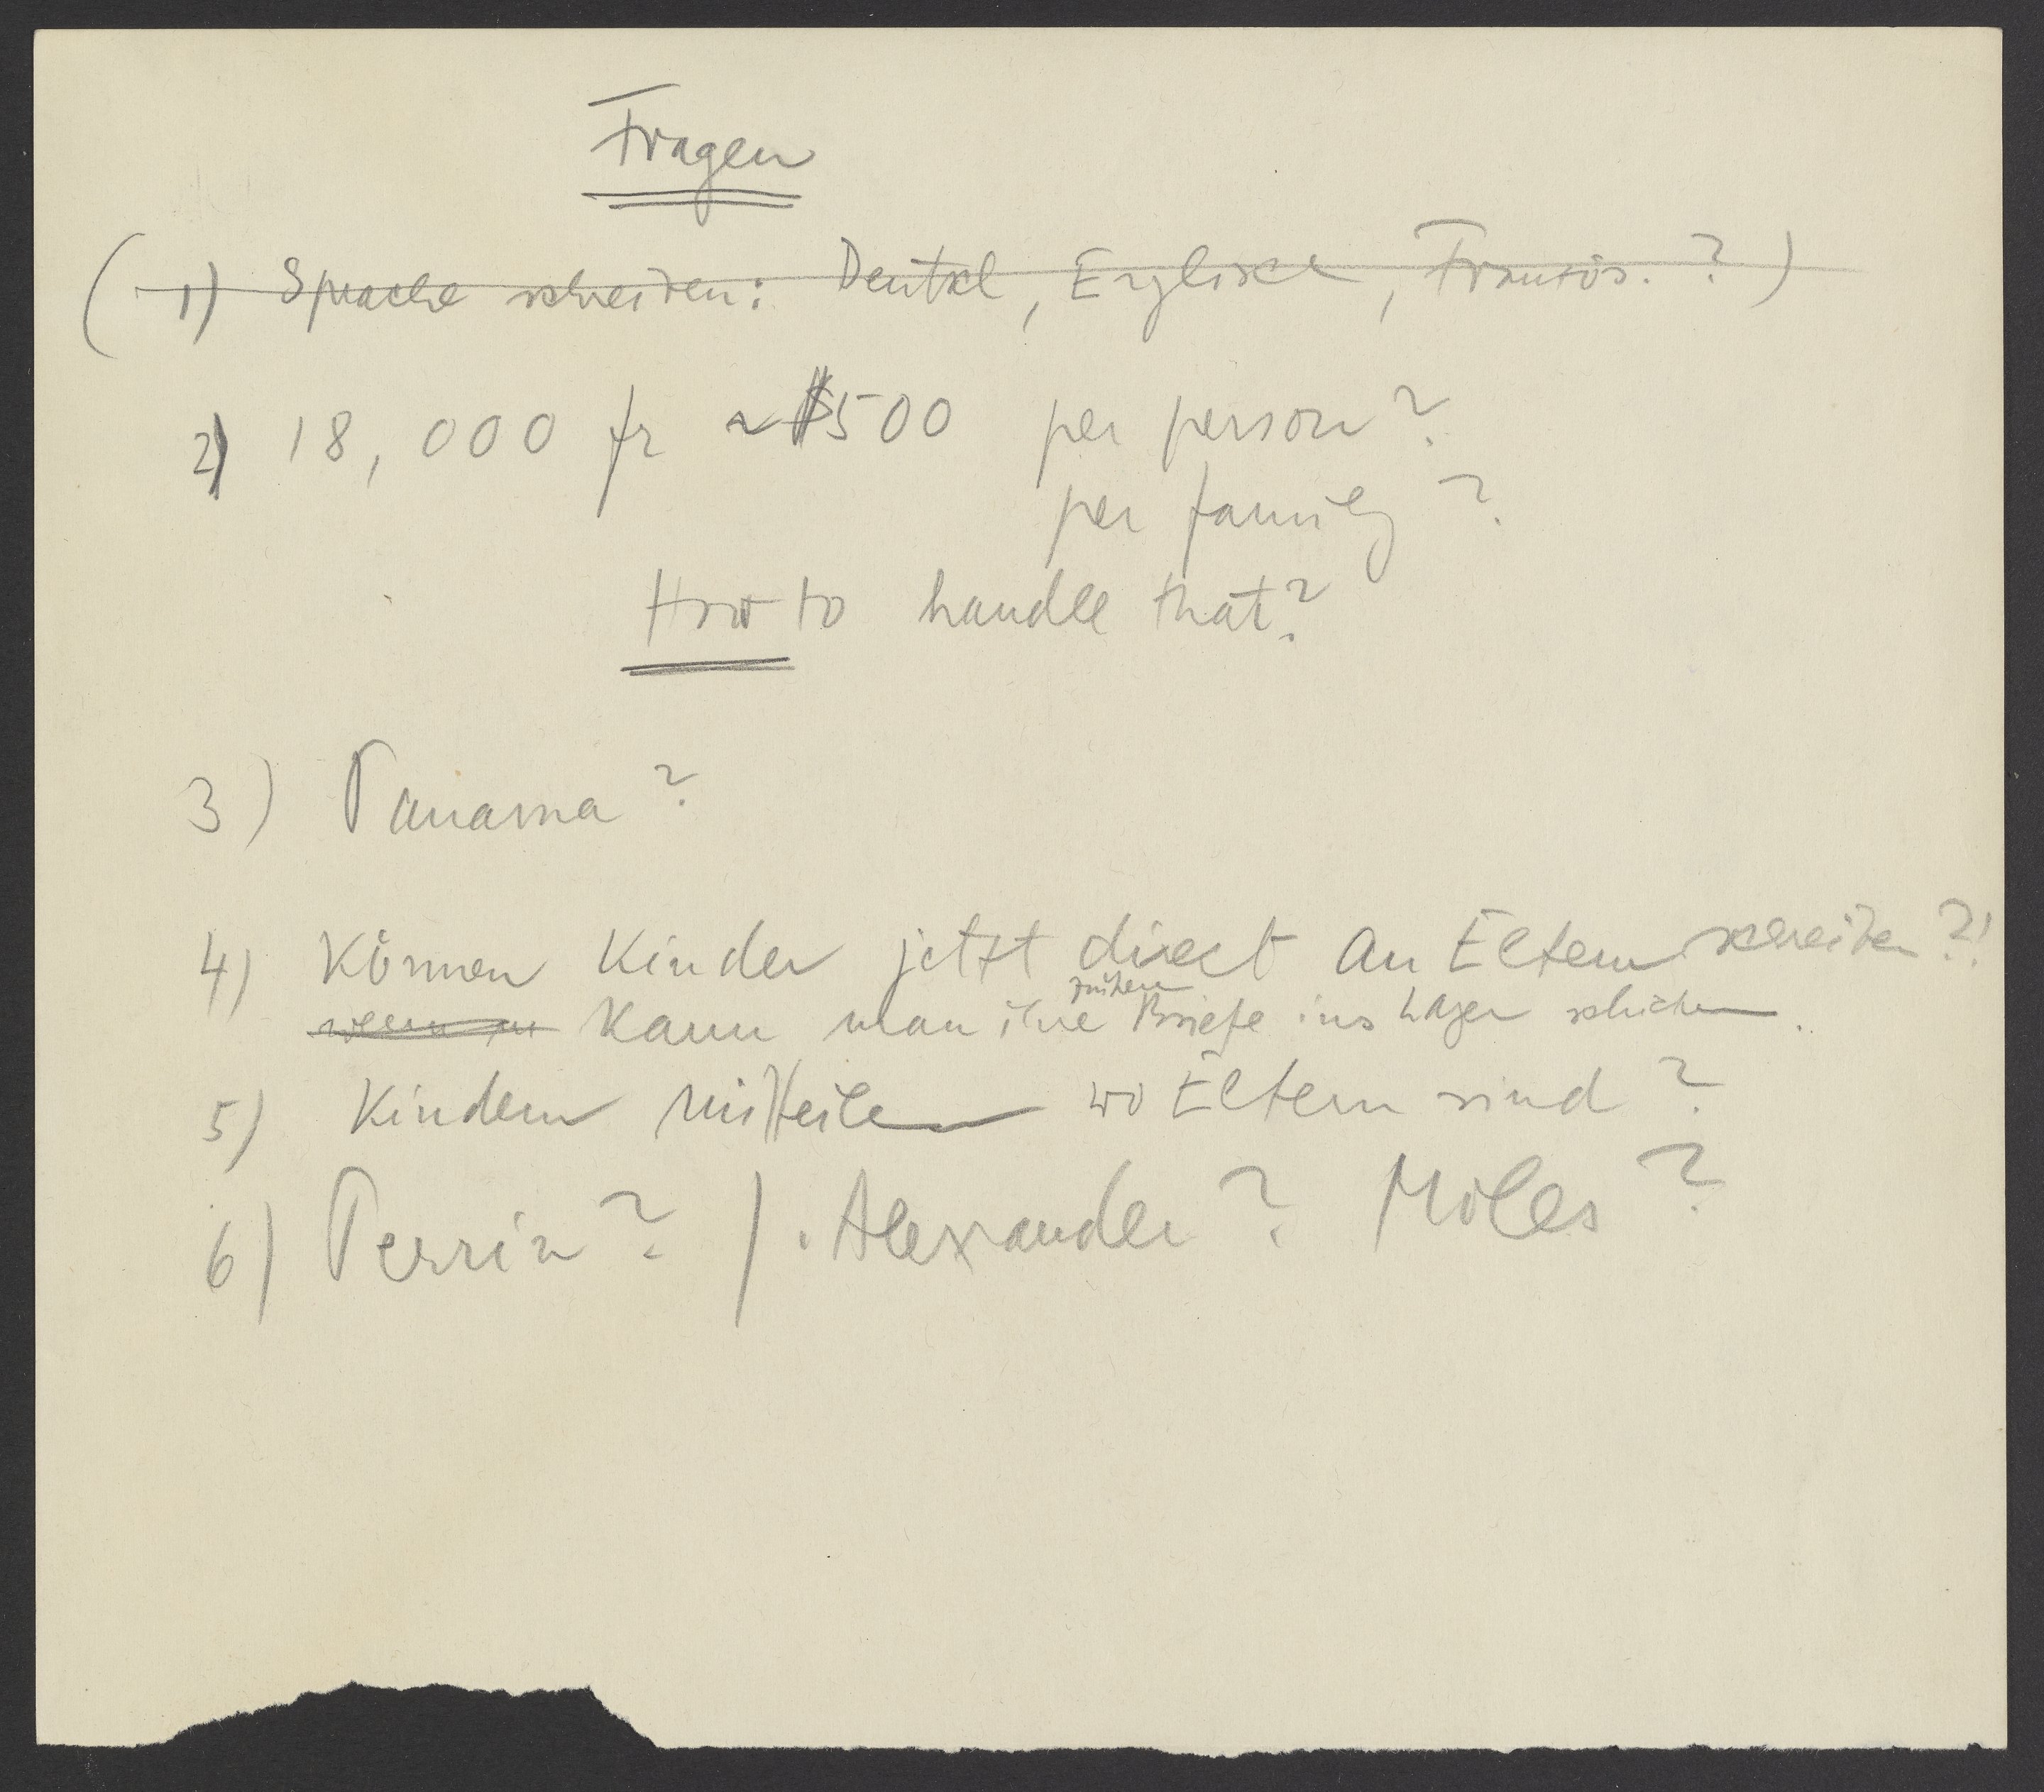 Fragen
(1) Sprache schreiben: Deutsch, Englisch, Französ. ?)
2) 18,000 fr ~ $500 per person?
per family?
How to handle that?
3) Panama?
4) Können Kinder jetzt direct an Eltern schreiben?!
frühere
wenn m Kann man ihre Briefe ins Lager schicken.
5) Kindern mitteilen wo Eltern sind?
6) Perrin? / . Alexander? Moles?